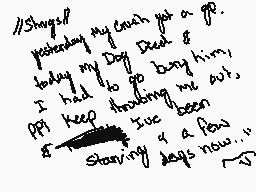 //Shrugs//
yesterday my crush got a gf.
today my Dog Died &
I had to go bury him,
ppl keep throwing me out,
& I've been
starving 4 a few
days now..."